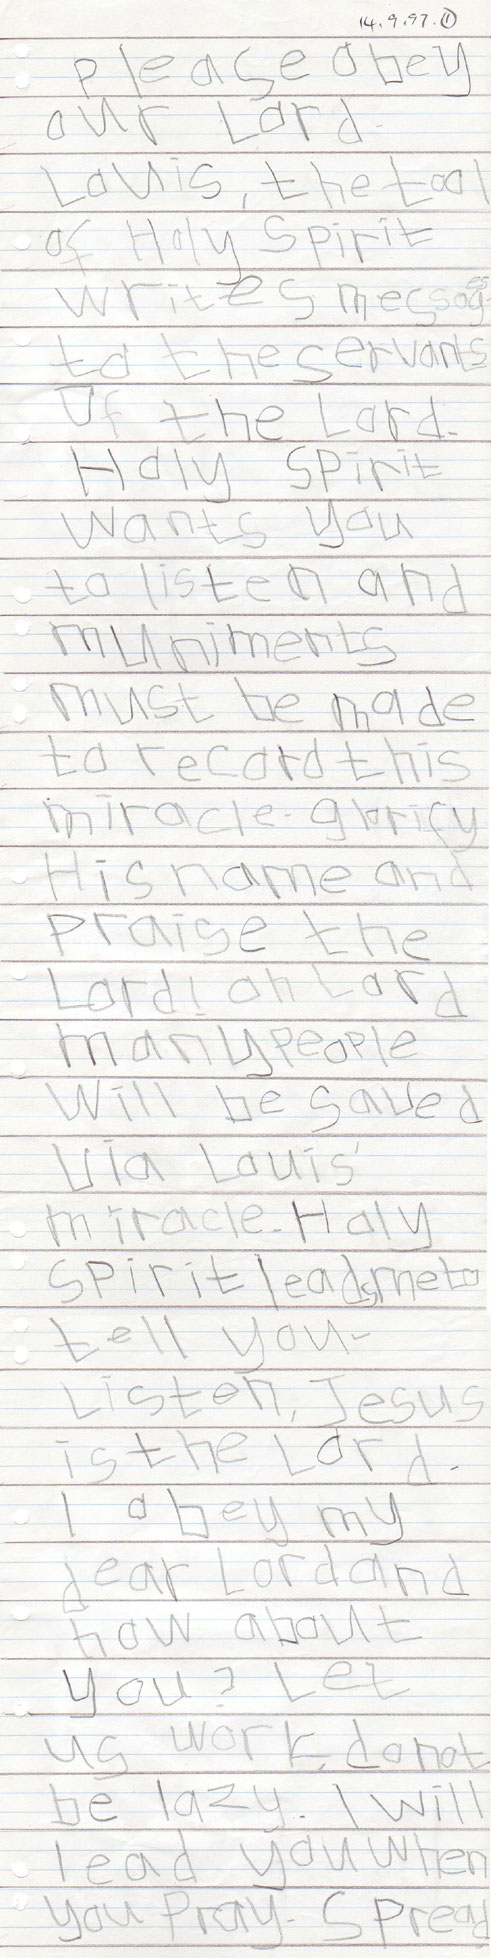 14.9.97. ①
please obey
our Lord.
Louis, the tool
of Holy Spirit
writes messages
to the servants
of the Lord.
Holy Spirit
wants you
to listen and
muniments
must be made
to record this
miracle. glorify
His name and
praise the
Lord! oh Lord
many people
will be saved
via Louis'
miracle. Holy
Spirit leads me to
tell you.
Listen, Jesus
is the Lord.
I obey my
dear Lord and
how about
you? Let
us work, do not
be lazy. I will
lead you when
you pray. Spread